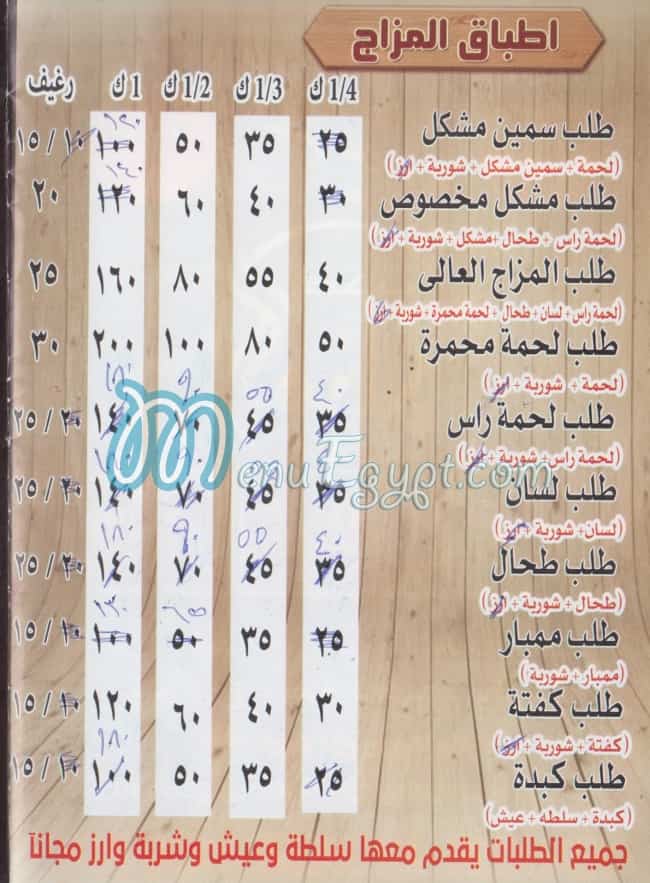 اطباق المزاج
1/4 ك 1/3 ك 1/2 ك 1 ك رغيف
طلب سمين مشكل ٢٥ ٣٥ ٥٠ ١٠٠ ١٥ / ١٠
١٢٠
(لحمة + سمين مشكل + شوربة + ارز)
١٤٠
طلب مشكل مخصوص ٣٠ ٤٠ ٦٠ ١٢٠ ٢٠
(لحمة راس + طحال +مشكل + شوربة + ارز)
طلب المزاج العالى ٤٠ ٥٥ ٨٠ ١٦٠ ٢٥
(لحمة راس + لسان + طحال + لحمة محمرة + شوربة + ارز)
طلب لحمة محمرة ٥٠ ٨٠ ١٠٠ ٢٠٠ ٣٠
(لحمة + شوربة + ارز)
٤٠ ٥٥ ٩٠ ١٨٠
طلب لحمة راس ٣٥ ٤٥ ٧٠ ١٤٠ ٢٥ / ٢٠
(لحمة راس + شوربة + ارز)
طلب لسان ٣٥ ٤٥ ٧٠ ١٤٠ ٢٥ / ٢٠
(لسان + شوربة + ارز)
٤٠ ٥٥ ٩٠ ١٨٠
طلب طحال ٣٥ ٤٥ ٧٠ ١٤٠ ٢٥ / ٢٠
(طحال + شوربة + ارز)
٦٥ ١٣٠
طلب ممبار ٢٥ ٣٥ ٥٠ ١٠٠ ١٥ / ١٠
(ممبار + شوربة)
طلب كفتة ٣٠ ٤٠ ٦٠ ١٢٠ ١٥ / ١٠
(كفتة + شوربة + ارز)
١٨٠
طلب كبدة ٢٥ ٣٥ ٥٠ ١٠٠ ١٥ / ١٠
(كبدة + سلطه + عيش)
جميع الطلبات يقدم معها سلطة وعيش وشربة وارز مجاناً
MenuEgypt.com